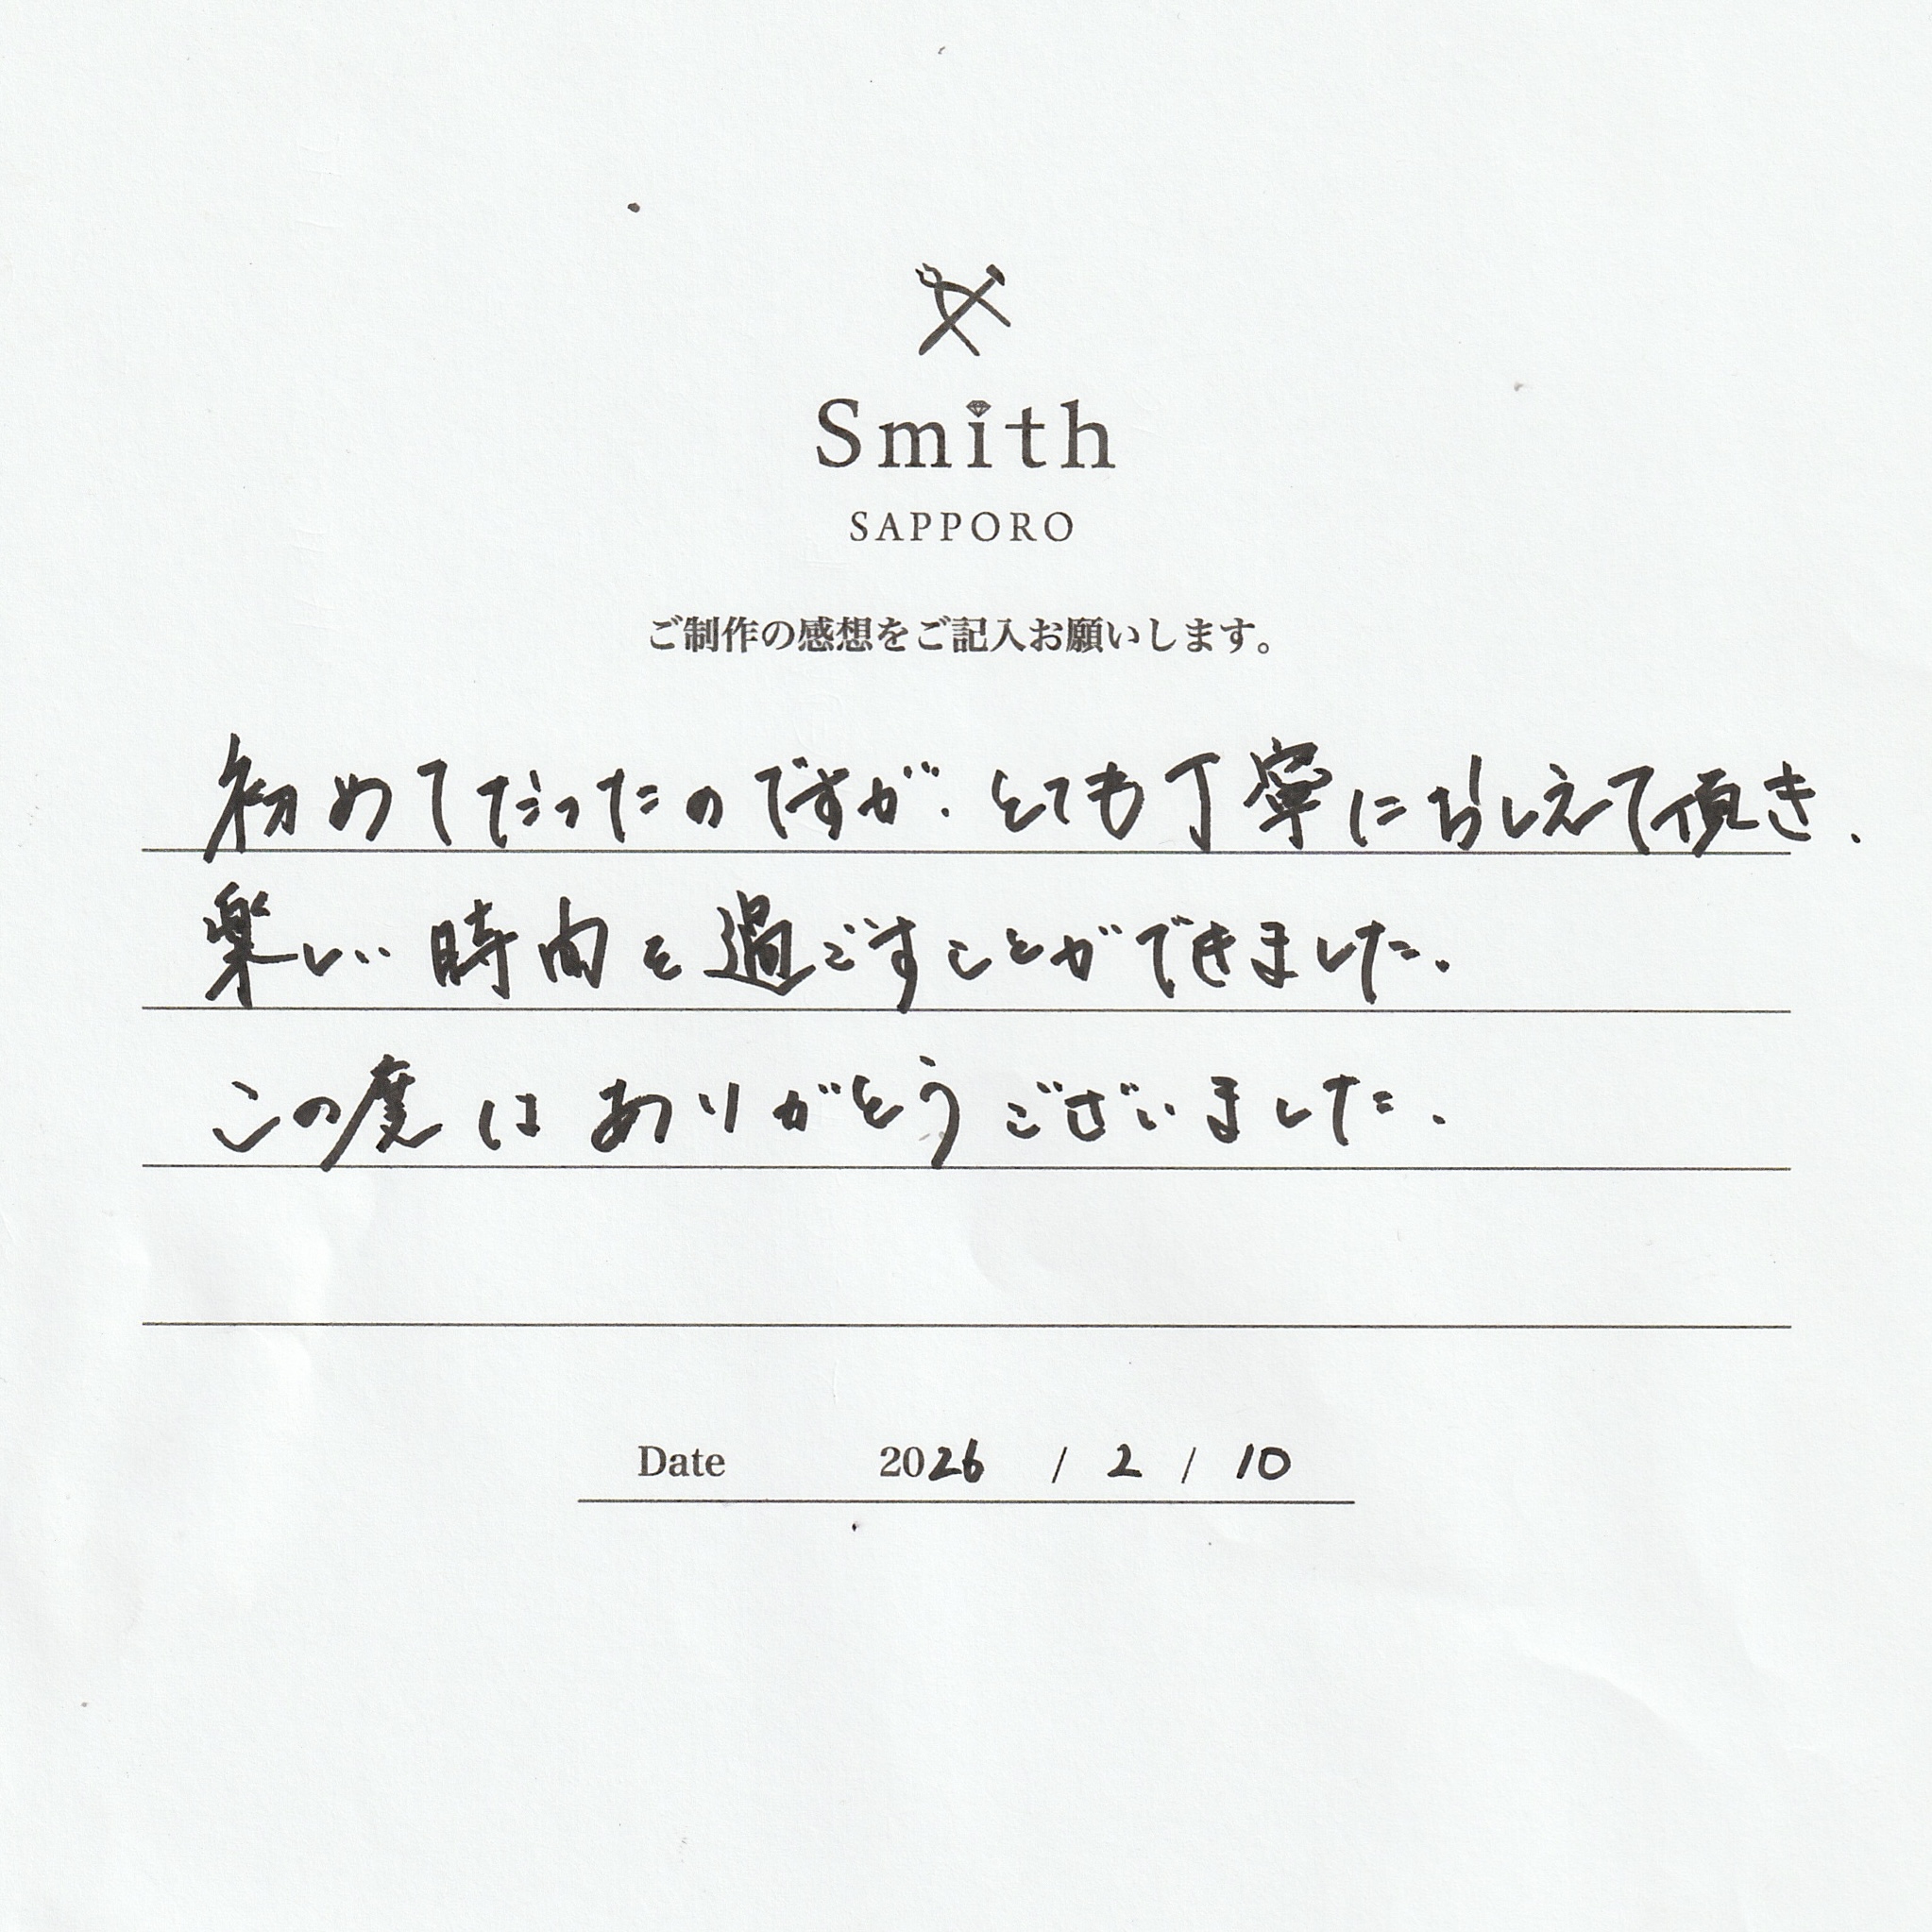 Smith
SAPPORO
ご制作の感想をご記入お願いします。
初めてだったのですが、とても丁寧におしえて頂き、
楽しい時間を過ごすことができました。
この度はありがとうございました。
Date 2026 / 2 / 10